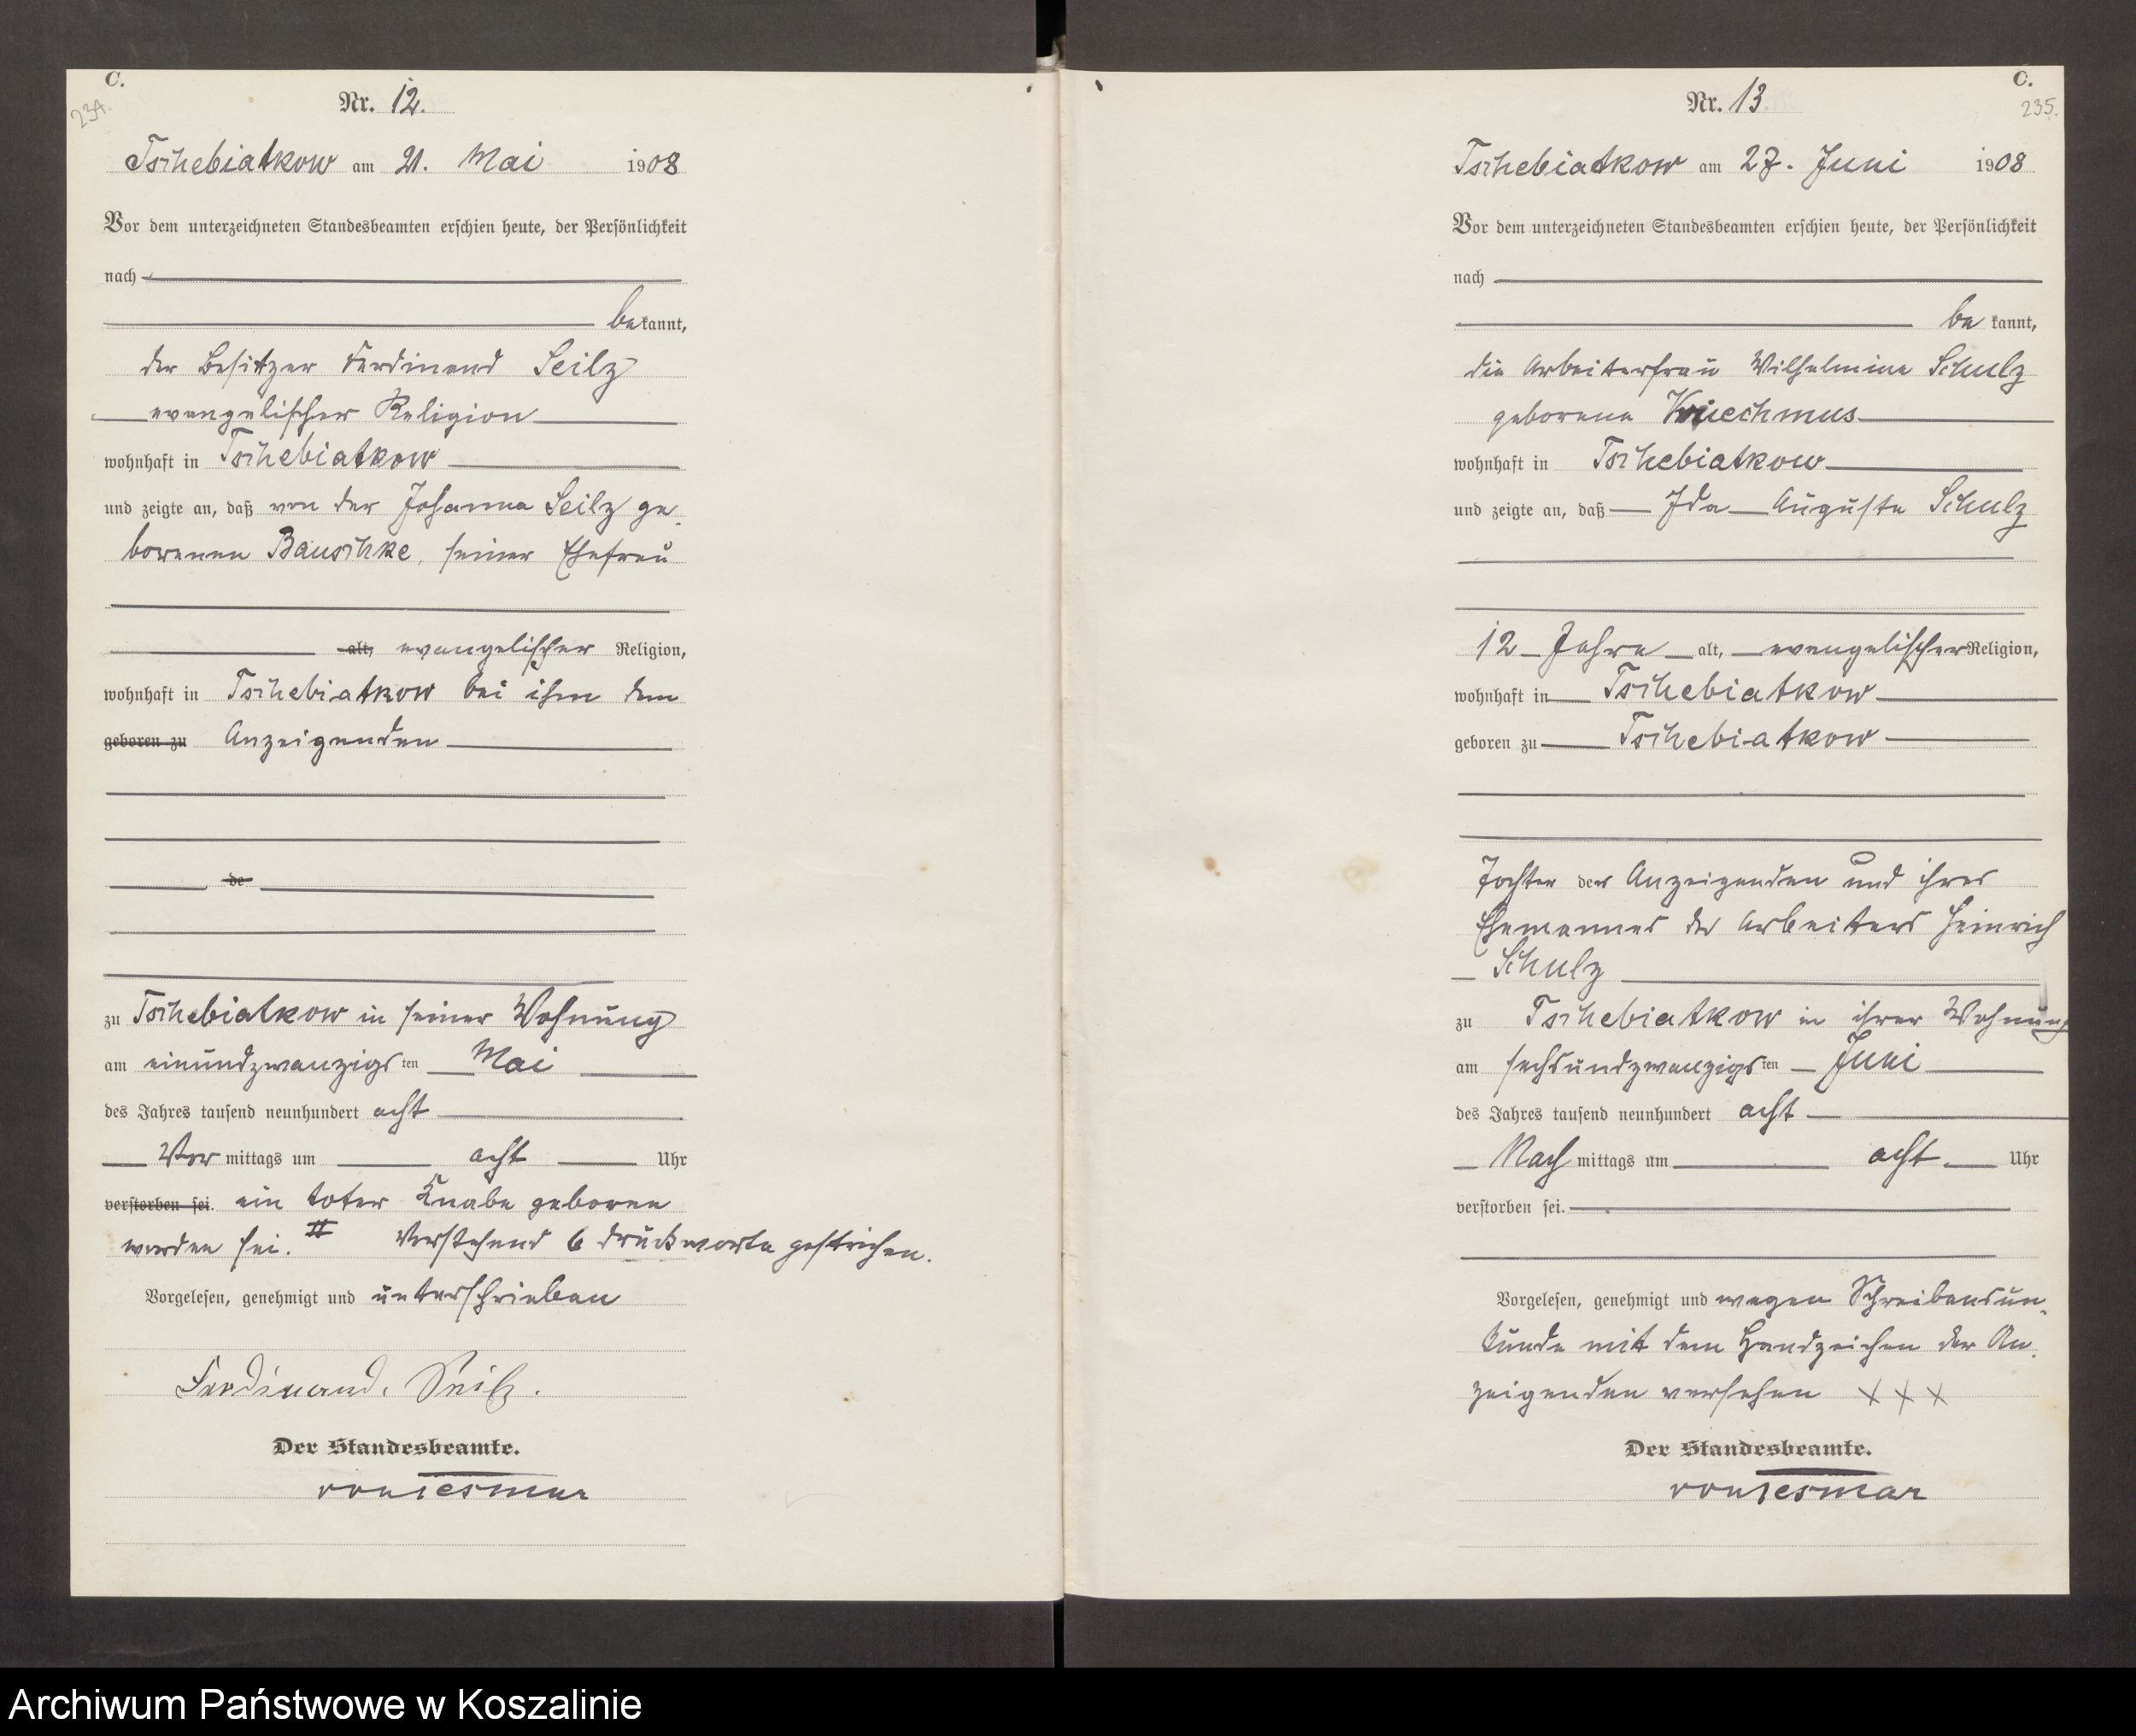 C.
234.
Nr. 12.
Tschebiatkow am 21. Mai 1908
Vor dem unterzeichneten Standesbeamten erschien heute, der Persönlichkeit
nach
bekannt,
der Besitzer Ferdinand Seilz
evangelischer Religion
wohnhaft in Tschebiatkow
und zeigte an, daß von der Johanna Seilz ge-
borenen Bauschke, seiner Ehefrau
alt, evangelischer Religion,
wohnhaft in Tschebiatkow bei ihm dem
geboren zu Anzeigenden
de
zu Tschebiatkow in seiner Wohnung
am einundzwanzigsten Mai
des Jahres tausend neunhundert acht
Vor mittags um acht Uhr
verstorben sei. ein toter Knabe geboren
worden sei. Vorstehend 6 Druckworte gestrichen.
Vorgelesen, genehmigt und unterschrieben
Ferdinand. Seilz.
Der Standesbeamte.
von Tesmar
C.
235.
Nr. 13
Tschebiatkow am 27. Juni 1908
Vor dem unterzeichneten Standesbeamten erschien heute, der Persönlichkeit
nach
be kannt,
die Arbeiterfrau Wilhelmine Schulz
geborene
wohnhaft in Tschebiatkow
und zeigte an, daß Ida Auguste Schulz
12 Jahre alt, evangelischer Religion,
wohnhaft in Tschebiatkow
geboren zu Tschebiatkow
Tochter der Anzeigenden und ihres
Ehemannes des Arbeiters Heinrich
Schulz
zu Tschebiatkow in ihrer Wohnung
am sechsundzwanzigsten Juni
des Jahres tausend neunhundert acht
Nach mittags um acht Uhr
verstorben sei.
Vorgelesen, genehmigt und wegen Schreibensun-
kunde mit dem Handzeichen der An-
zeigenden versehen XXX
Der Standesbeamte.
von Tesmar
Archiwum Państwowe w Koszalinie